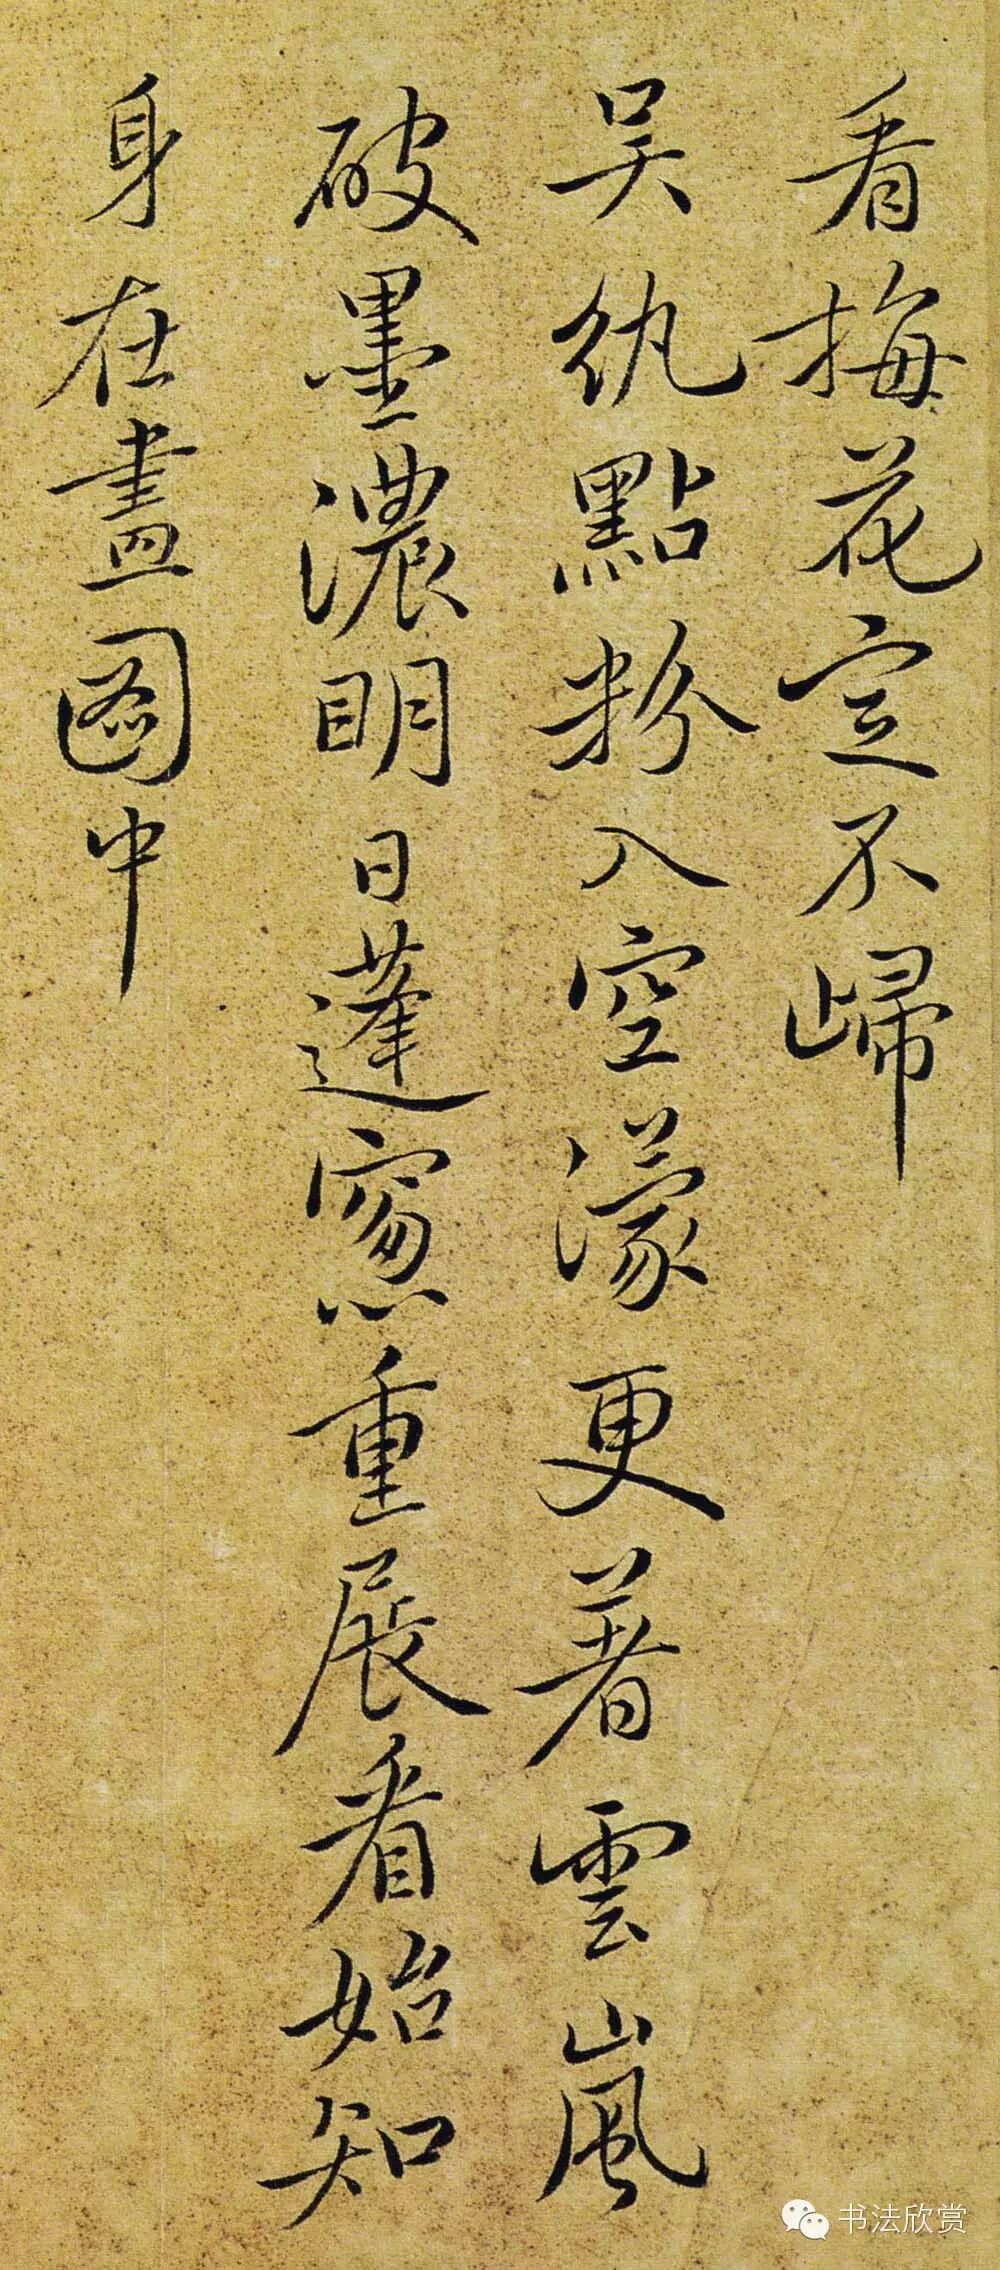 看梅花定不歸
吴紈點粉入空濛更著雲嵐
破墨濃明日蓬窗重展看始知
身在畫圖中
书法欣赏